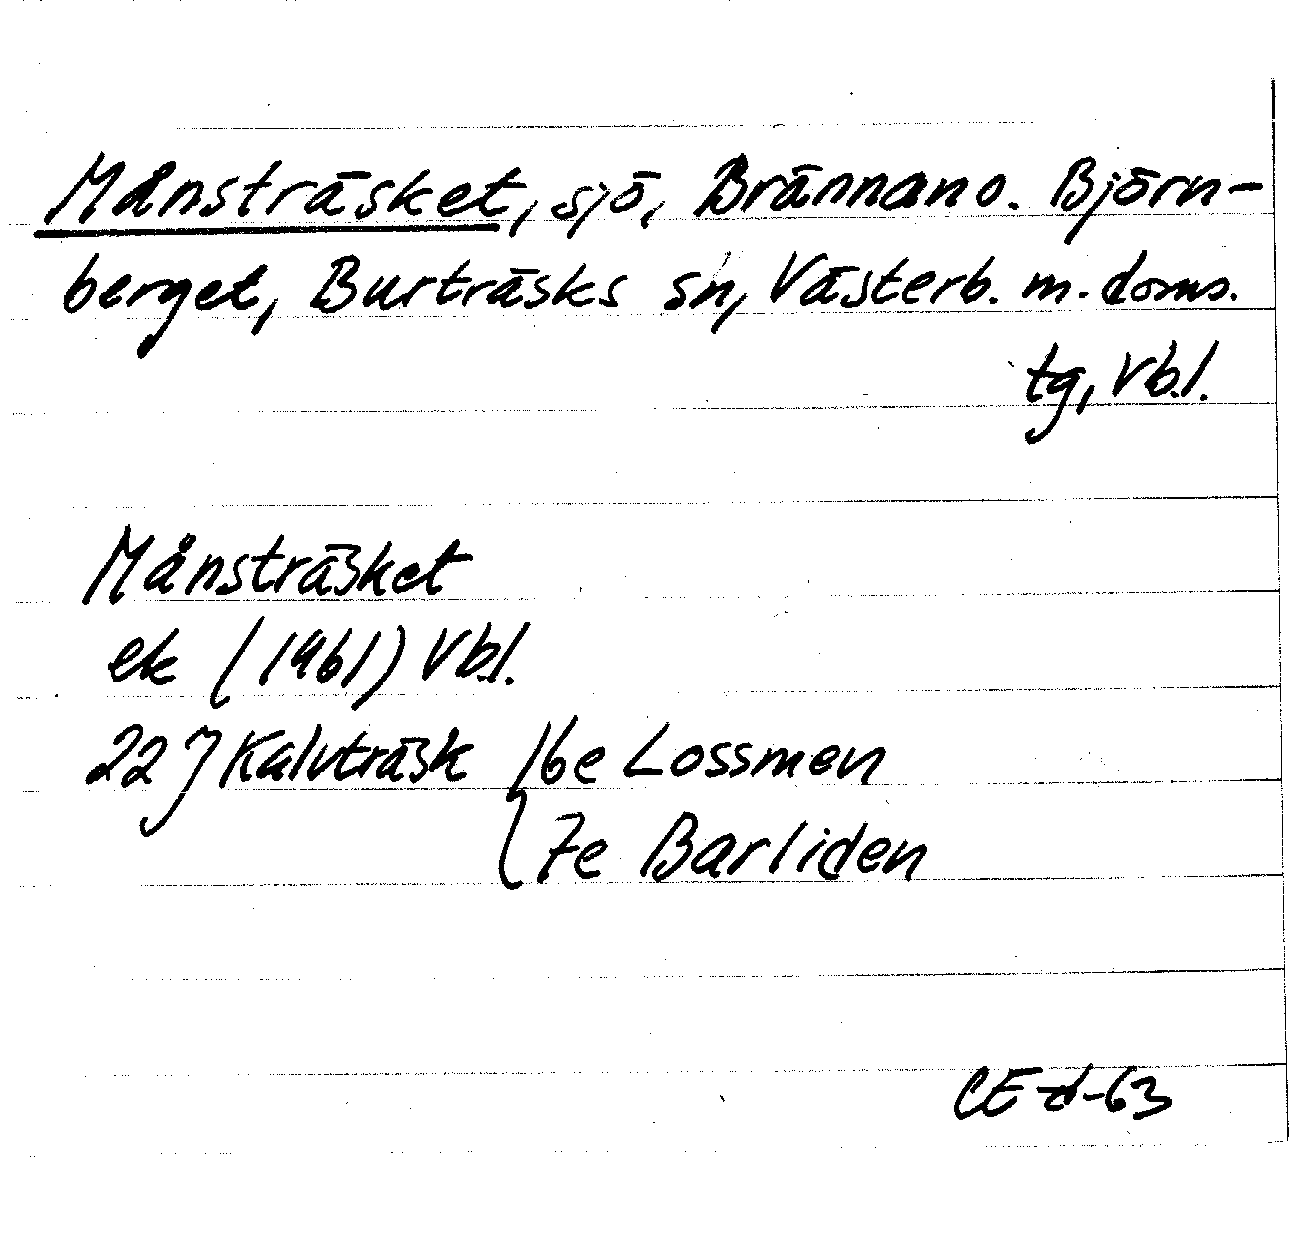 Månsträsket, sjö, Brännan o. Björn-
berget, Burträsks sn, Västerb. m. doms.
tg, Vbl.
Månsträsket
ek (1961) Vbl.
22 J Kalvträsk 6e Lossmen
7e Barliden
CE-d-63